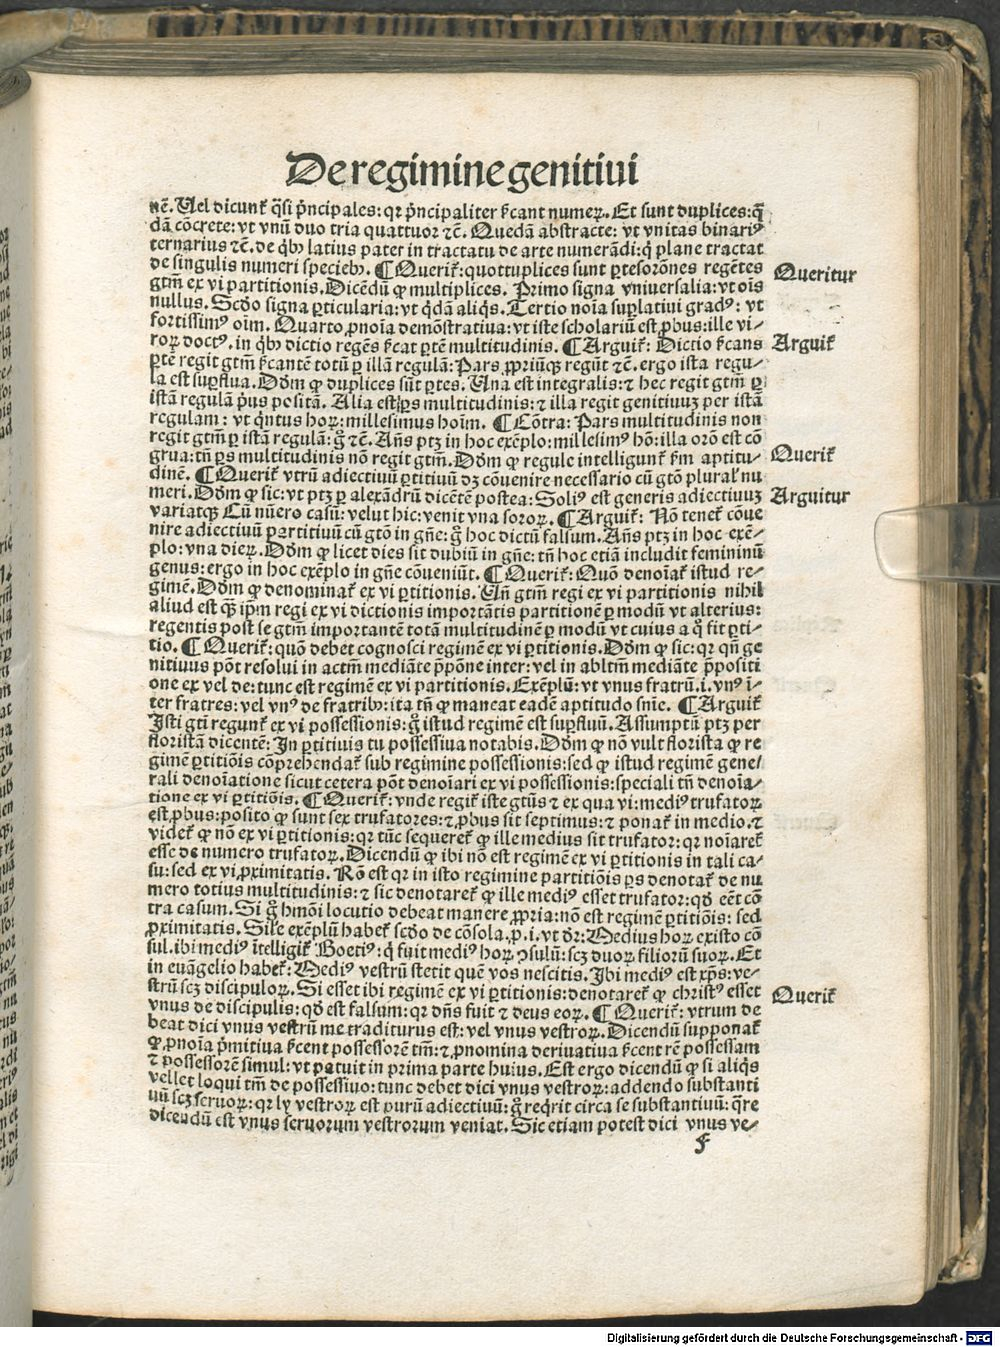 De regimine genitiui
nē. Uel dicunt᷑ q̄si p̄ncipales: qꝛ p̄ncipaliter ſc̄ant numeꝝ. Et sunt duplices: q̄
dā cōcrete: vt vnū duo tria quattuor ⁊c̄. Quedā abstracte: vt vnitas binariꝰ
ternarius ⁊c̄. de q̇bꝰ latius patet in tractatu de arte numerādi: q̇ plane tractat
de singulis numeri specieb⁹. ¶ Querit᷑: quottuplices sunt ꝑtes orōnes regētes
Queritur
gtm̄ ex vi partitionis. Dicēdū ꝙ multiplices. Primo signa vniuersalia: vt oīs
nullus. Scdo signa ꝑticularia: vt q̇dā aliq̇s. Tertio noīa suꝑlatiui gradꝰ: vt
fortissimꝰ oīm. Quarto ꝓnoīa demōstratiua: vt iste scholariū est ꝓbus: ille vi-
roꝝ doctꝰ. in q̇bꝰ dictio regēs ſc̄at ꝑtē multitudinis. ¶ Arguit᷑: Dictio ſc̄ans
Arguit᷑
ꝑte regit gtm̄ ſc̄antē totū ꝑ illā regulā: Pars ꝓpriūqꝫ regūt ⁊c̄. ergo ista regu-
la est suꝑflua. Dōm ꝙ duplices sūt ꝑtes. Una est integralis: ⁊ hec regit gtm̄ ꝑ
istā regulā pꝰus positā. Alia est ꝑs multitudinis: ⁊ illa regit genitiuuꝫ per istā
regulam: vt q̇ntus hoꝝ: millesimus hoīm. ¶ Cōtra: Pars multitudinis non
regit gtm̄ ꝑ istā regulā: g̊ ⁊c̄. Añs ptꝫ in hoc exēplo: millesimꝰ hō: illa orō est cō
grua: tn̄ ꝑs multitudinis nō regit gtm̄. Dōm ꝙ regule intelligunt᷑ ſm̄ aptitu-
Querit᷑
dinē. ¶ Querit᷑ vtrū adiectiuū ꝑtitiuū dꝫ cōuenire necessario cū gtō plural᷑ nu
meri. Dōm ꝙ sic: vt ptꝫ ꝑ alexādrū dicētē postea: Soliꝰ est generis adiectiuuꝫ
Arguitur
variatqꝫ Cū nūero casū: velut hic: venit vna soroꝝ. ¶ Arguit᷑: Nō tenet᷑ cōue
nire adiectiuū partitiuū cū gtō in gn̄e: g̊ hoc dictū falsum. Añs ptꝫ in hoc exē-
plo: vna dieꝝ. Dōm ꝙ licet dies sit dubiū in gn̄e: tn̄ hoc etiā includit femininū
genus: ergo in hoc exēplo in gn̄e cōueniūt. ¶ Querit᷑: Quō denoīat᷑ istud re-
gimē. Dōm ꝙ denominat᷑ ex vi ꝑtitionis. Uñ gtm̄ regi ex vi partitionis nihil
aliud est q̄ꝫ ip̄m regi ex vi dictionis importātis partitionē ꝑ modū vt alterius:
regentis post se gtm̄ importantē totā multitudinē ꝑ modū vt cuius a q̊ fit ꝑti-
tio. ¶ Querit᷑: quō debet cognosci regimē ex vi ꝑtitionis. Dōm ꝙ sic: qꝛ qn̄ ge
nitiuus pōt resolui in actm̄ mediāte p̄pōne inter: vel in abltm̄ mediāte p̄positi
one ex vel de: tunc est regimē ex vi partitionis. Exēplū: vt vnus fratrū. i. vnꝰ ī-
ter fratres: vel vnꝰ de fratribꝰ: ita tn̄ ꝙ maneat eadē aptitudo sn̄ie. ¶ Arguit᷑
Isti gtī regunt᷑ ex vi possessionis: g̊ istud regimē est suꝑfluū. Assumptū ptꝫ per
floristā dicentē: In ꝑtitiuis tu possessiua notabis. Dōm ꝙ nō vult florista ꝙ re
gimē ꝑtitiōis cōprehendat᷑ sub regimine possessionis: sed ꝙ istud regimē gene-
rali denoīatione sicut cetera pōt denoīari ex vi possessionis: speciali tn̄ denoīa-
tione ex vi ꝑtitiōis. ¶ Querit᷑: vnde regit᷑ iste gtūs ⁊ ex qua vi: mediꝰ trufatoꝝ
est ꝓbus: posito ꝙ sunt sex trufatores: ⁊ ꝓbus sit septimus: ⁊ ponat᷑ in medio. ⁊
videt᷑ ꝙ nō ex vi ꝑtitionis: qꝛ tūc sequeret᷑ ꝙ ille medius sit trufator: qꝛ noīaret᷑
esse de numero trufatoꝝ. Dicendū ꝙ ibi nō est regimē ex vi ꝑtitionis in tali ca-
su: sed ex vi ꝓximitatis. Rō est qꝛ in isto regimine partitiōis ꝑs denotat᷑ de nu
mero totius multitudinis: ⁊ sic denotaret᷑ ꝙ ille mediꝰ esset trufator: qd̄ eēt cō
tra casum. Si g̊ hmōi locutio debeat manere ꝓpria: nō est regimē ꝑtitiōis: sed
ꝓximitatis. Sil᷑e exēplū habet᷑ scdo de cōsola. p. i. vt dr̄: Medius hoꝝ existo cō
sul. ibi mediꝰ ītelligit᷑ Boetiꝰ: q̇ fuit mediꝰ hoꝝ ɔsulū: scꝫ duoꝝ filioꝝ suoꝝ. Et
in euāgelio habet᷑: Mediꝰ vestrū stetit quē vos nescitis. Ibi mediꝰ est xp̄s: ve-
strū scꝫ discipuloꝝ. Si esset ibi regimē ex vi ꝑtitionis: denotaret᷑ ꝙ christꝰ esset
Querit᷑
vnus de discipulis: qd̄ est falsum: qꝛ dn̄s fuit ⁊ deus eoꝝ. ¶ Querit᷑: vtrum de
beat dici vnus vestrū me traditurus est: vel vnus vestroꝝ. Dicendū supponat᷑
ꝙ ꝓnoīa p̄mitiua ſc̄ent possessorē tm̄: ⁊ ꝓnomina deriuatiua ſc̄ent rē possessam
⁊ possessorē simul: vt patuit in prima parte huius. Est ergo dicendū ꝙ si aliq̇s
vellet loqui tm̄ de possessiuo: tunc debet dici vnus vestroꝝ: addendo substanti
uū scꝫ seruoꝝ: qꝛ ly vestroꝝ est purū adiectiuū: g̊ req̇rit circa se substantiuū: q̄re
dicendū est vnus seruorum vestrorum veniat. Sic etiam potest dici vnus ve-
f
Digitalisierung gefördert durch die Deutsche Forschungsgemeinschaft - DFG